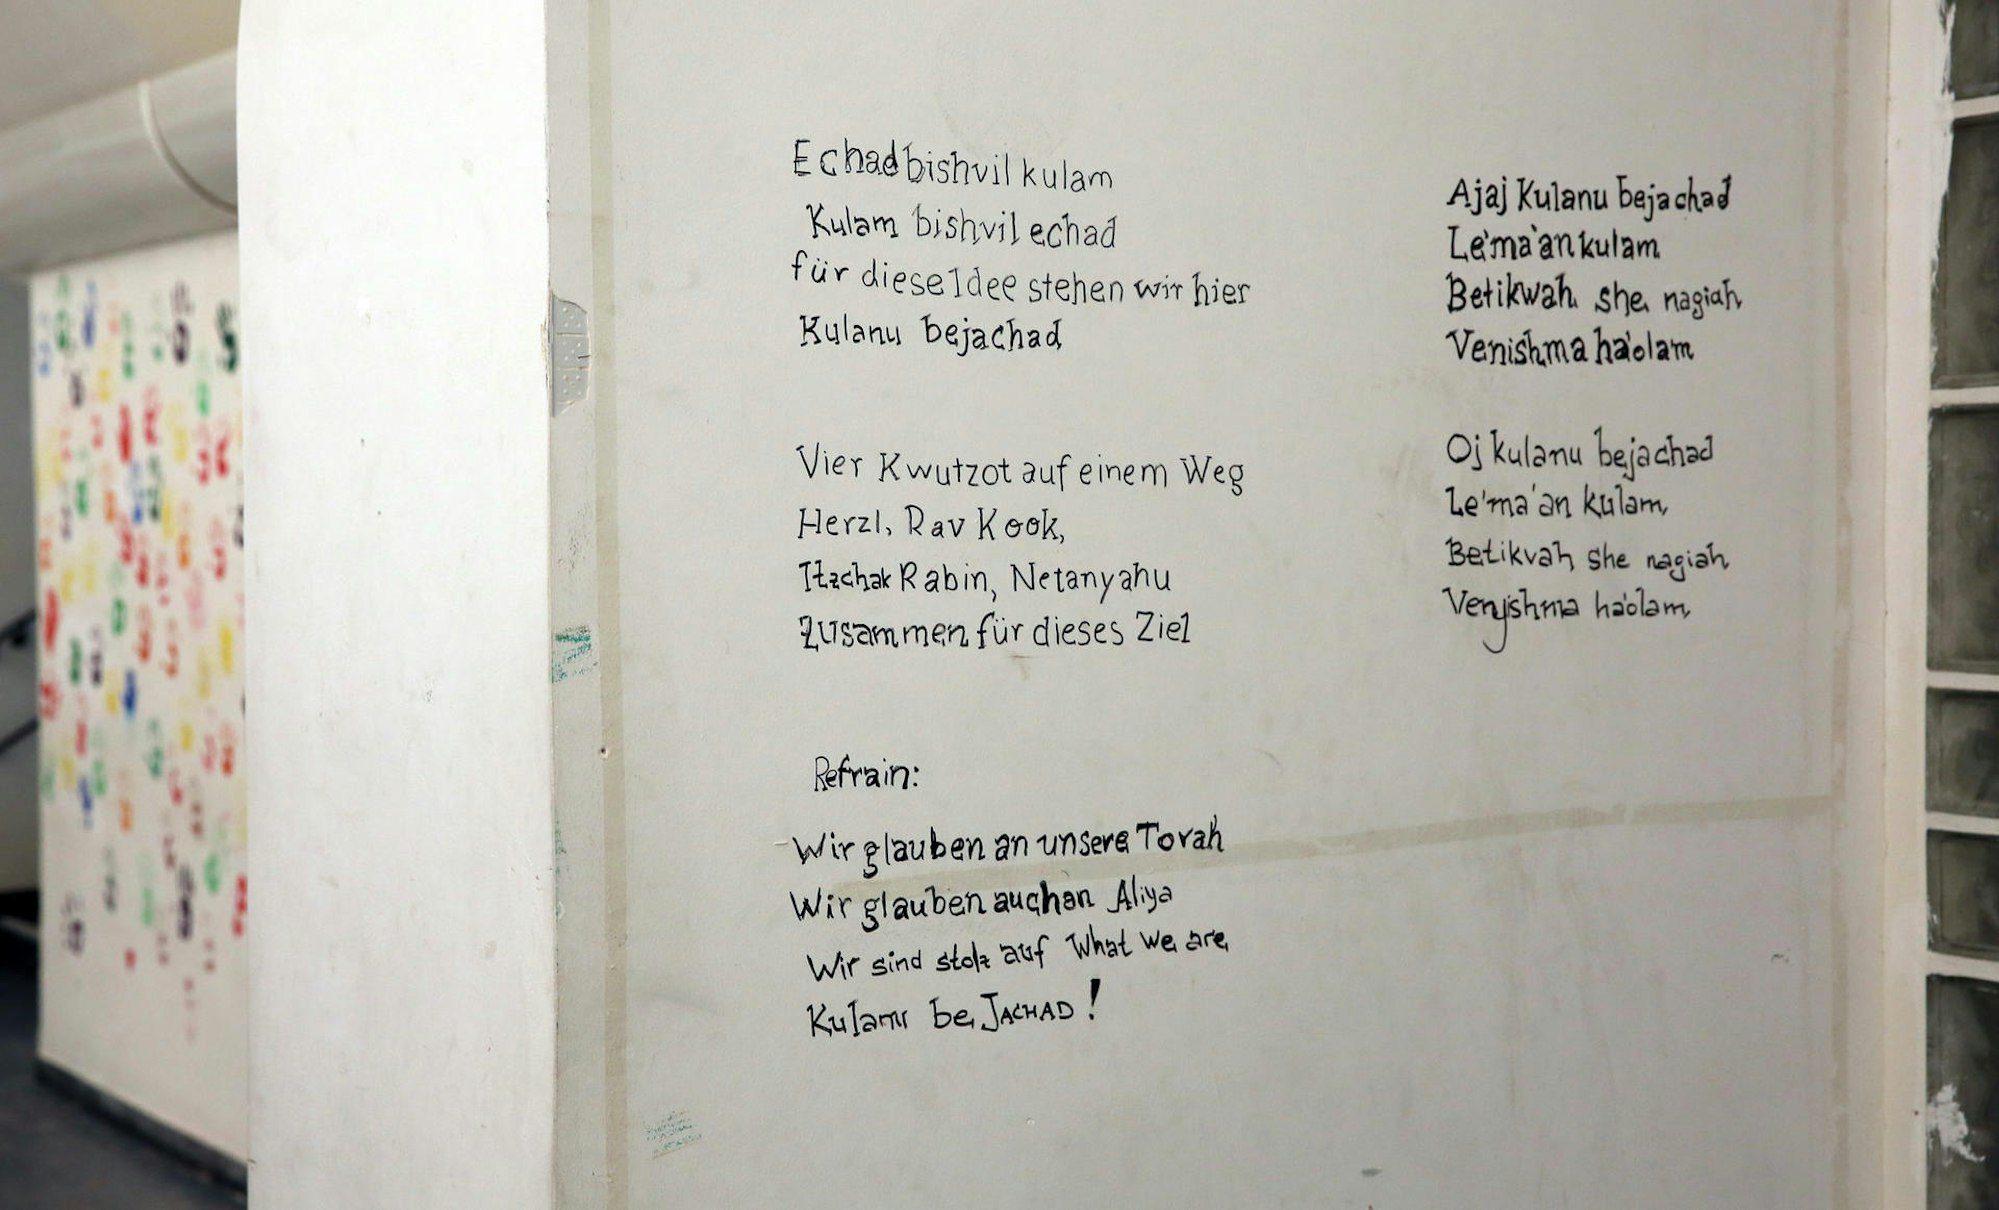 Echad bishvil kulam
Kulam bishvil echad
für diese Idee stehen wir hier
Kulanu bejachad
Vier Kwutzot auf einem Weg
Herzl, Rav Kook,
Itzchak Rabin, Netanyahu
Zusammen für dieses Ziel
Refrain:
Wir glauben an unsere Torah
Wir glauben auch an Aliya
Wir sind stolz auf What we are
Kulanu be JACHAD!
Ajaj Kulanu bejachad
Le'ma'an kulam
Betikwah she nagiah
Venishma ha'olam
Oj kulanu bejachad
Le'ma'an kulam
Betikvah she nagiah
Venjshma ha'olam